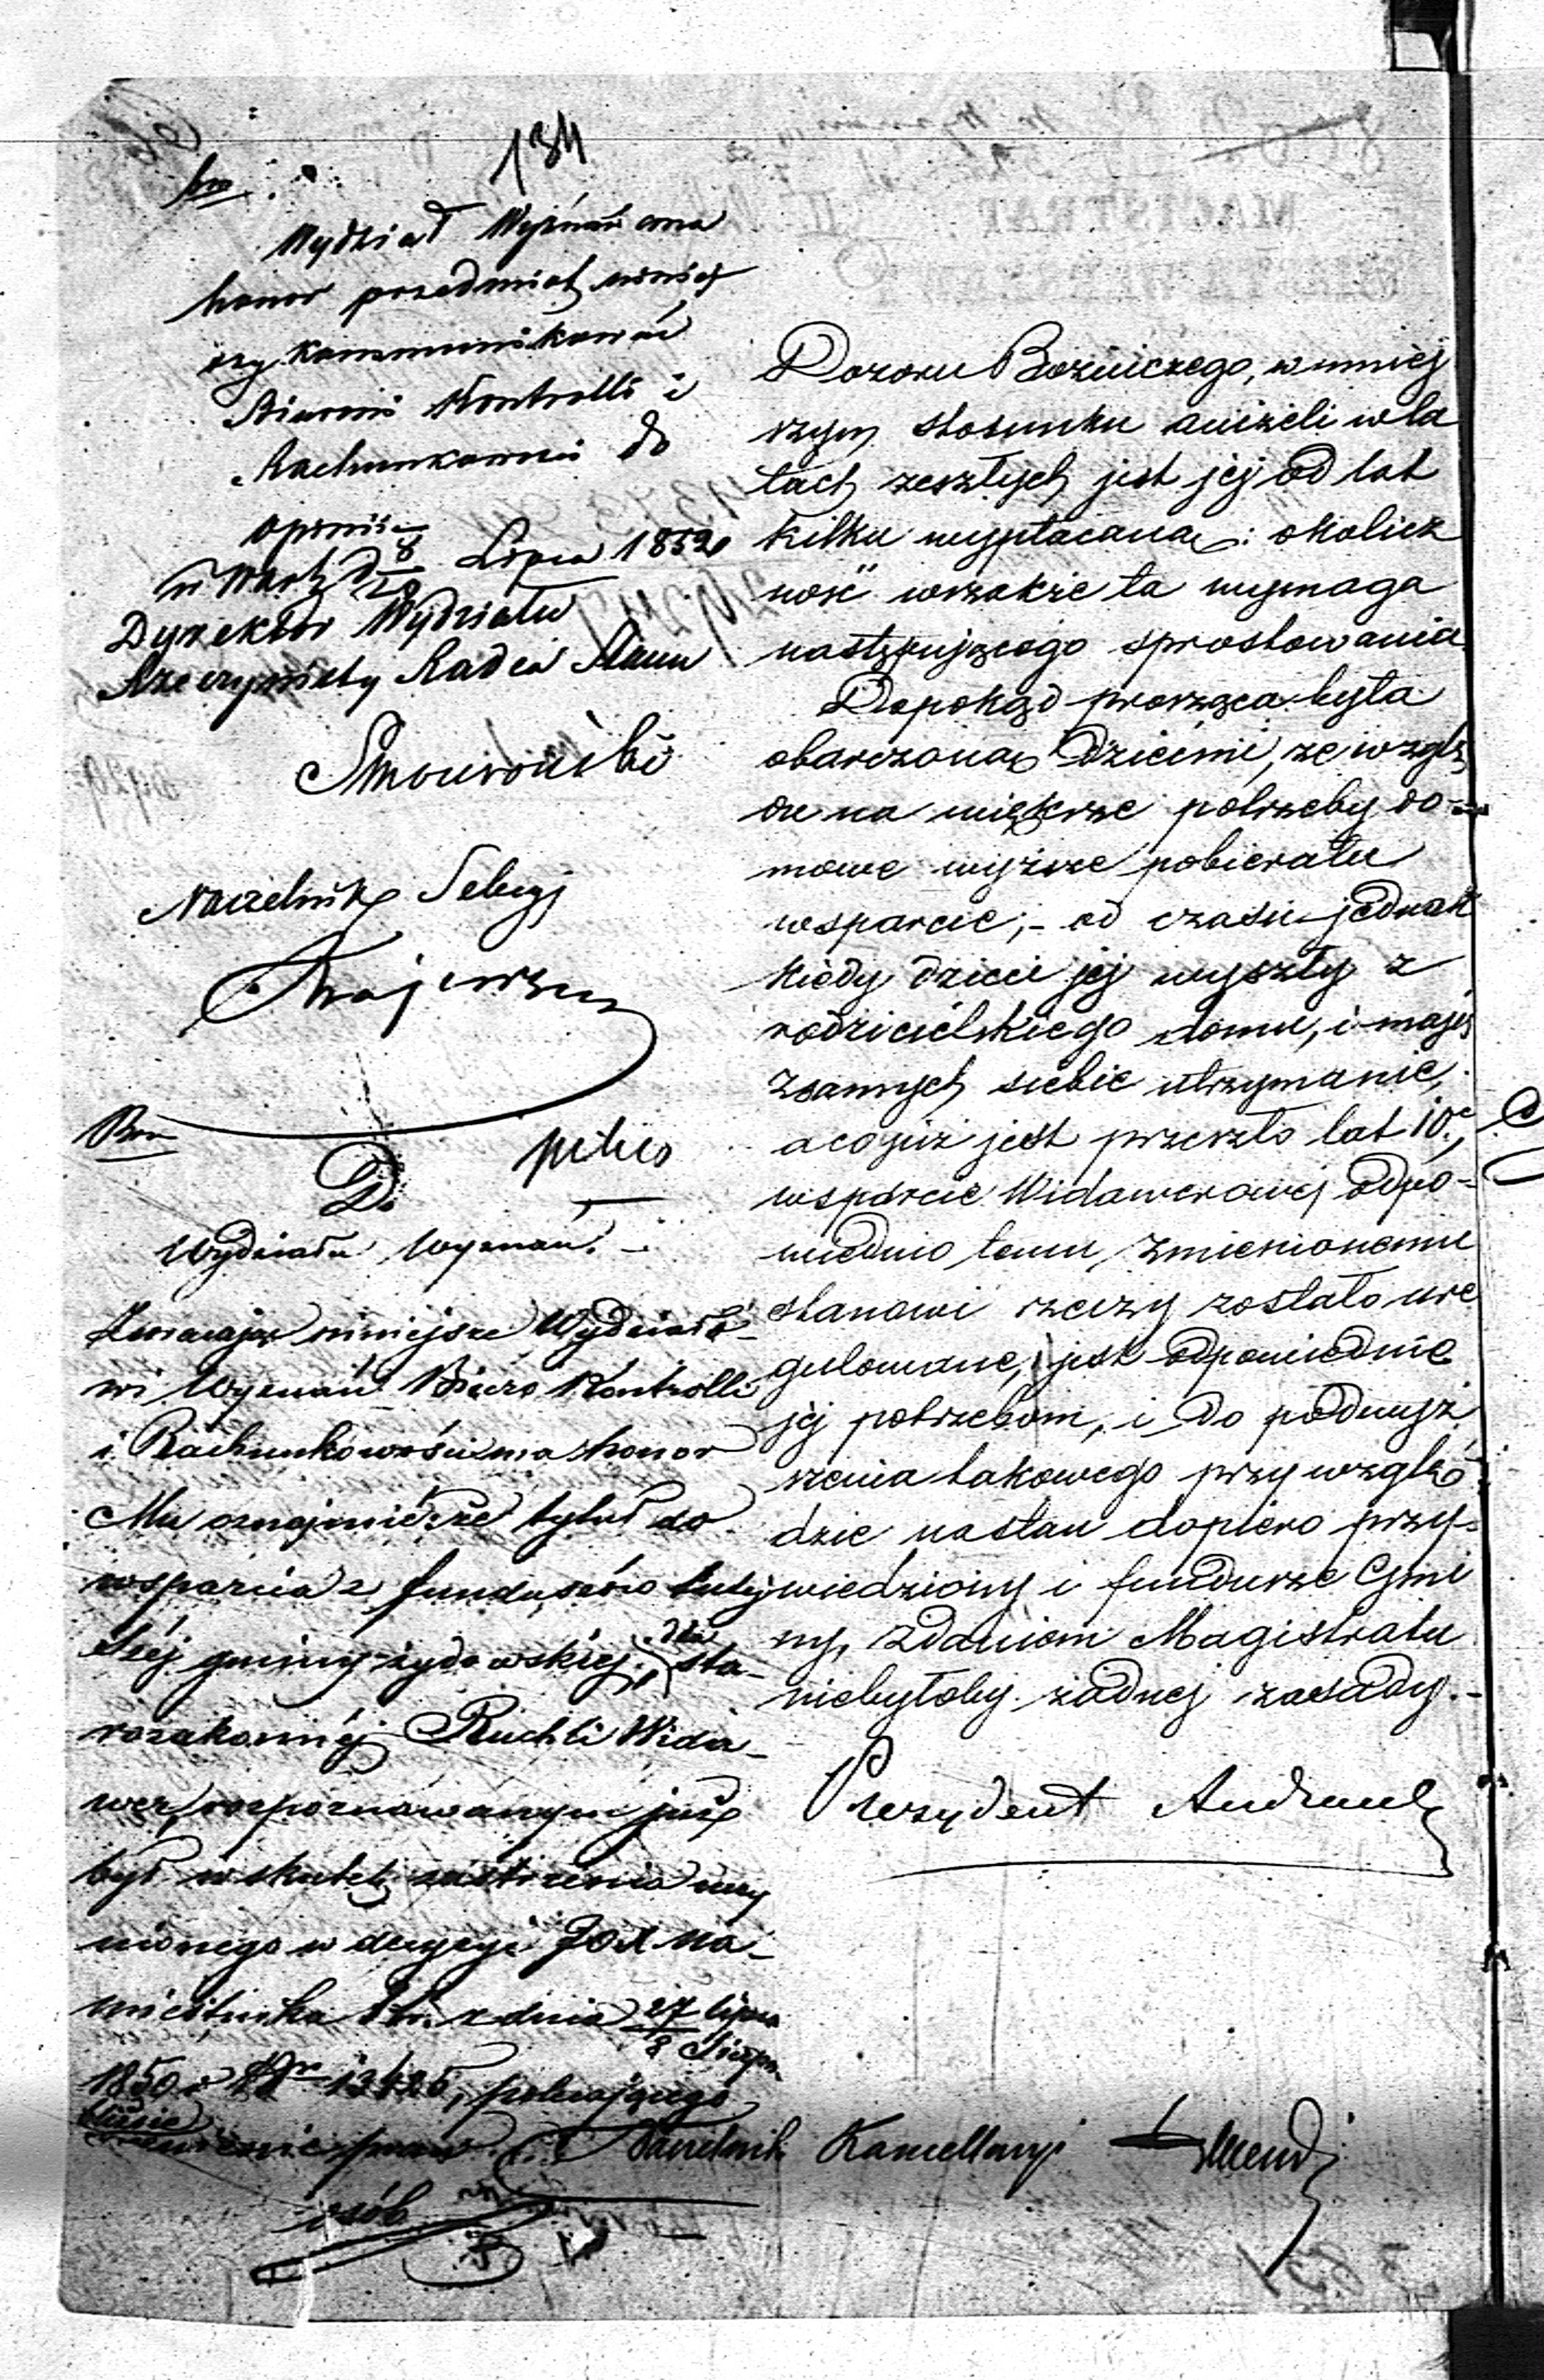 134
Wydział Wyznań ma
honor przedmiot niniej
szy kommunikować
Biurowi Kontrolli i
Rachunkowości do
opinii
w Warsz d 8/20 Lipca 1852
Dyrektor Wydziału
Rzeczywisty Radca Stanu
Naczelnik Sekcyi
Do
Wydziału Wyznań.
Zwracając niniejsze Wydziało-
wi Wyznań Biuro Kontrolli
i Rachunkowości ma honor
Mu oznajmić, że tytuł do
wsparcia z funduszów tutej
szej gminy żydowskiej, dla sta-
rozakonnej Ruchli Wida-
wer, rozpoznawanym już
był w skutek zastrzeżenia uczy
nionego w decyzyi JOX Na-
miestnika Kr. z dnia 27 lipca / 8 Sierpn.
1850 r Nr 13425, polecającego
osób
Dozoru Bożniczego, w mniej
szym stosunku aniżeli w la
tach zeszłych jest jej od lat
kilku wypłacana; okolicz
ność wszakże ta wymaga
następującego sprostowania
Dopokąd prosząca była
obarczona dziećmi, ze wzglę
du na większe potrzeby do-
mowe wyższe pobierała
wsparcie; - od czasu jednak
kiedy dzieci jej wyszły z
rodzicielskiego domu, i mają
z samych siebie utrzymanie,
a co już jest przeszło lat 10,
wsparcie Widawerowej odpo-
wiednio temu zmienionemu
stanowi rzeczy zostało ure
gulowane, jest odpowiednie
jej potrzebom, i do podwyż
szenia takowego przy wzglę
dzie na stan dopiero przy-
wiedziony i fundusze Gmi
ny, zdaniem Magistratu
niebyłoby żadnej zasady. -
Prezydent Andrault
Naczelnik Kancellaryi